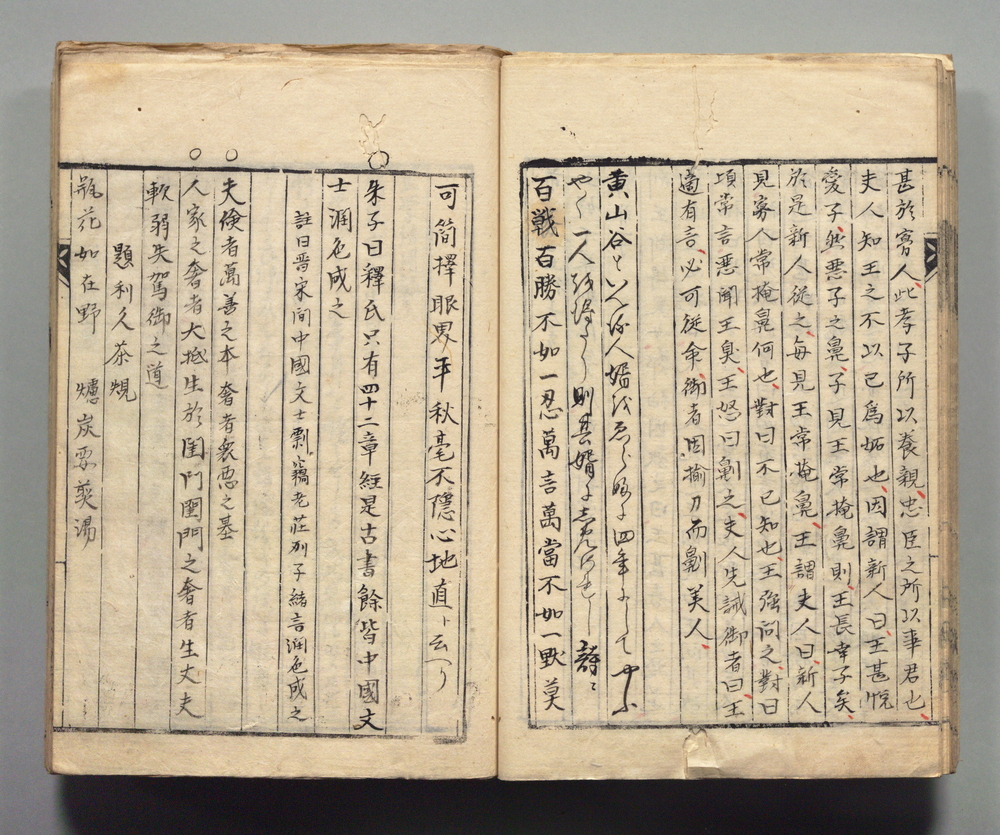 甚於寡人此孝子所以養親忠臣之所以事君也
夫人知王之不以己爲妬也因謂新人曰王甚悅
愛子然惡子之鼻子見王常掩鼻則王長幸子矣
於是新人從之每見王常掩鼻王謂夫人曰新人
見寡人常掩鼻何也對曰不已知也王强问之對曰
項常言惡聞王臭王怒曰劓之夫人先誡御者曰王
適有言必可從命御者因揄刀而劓美人
黄山谷と
一人 則其婿
百戦百勝不如一忍萬言萬當不如一默莫
可简擇眼界平秋毫不隱心地直
朱子曰釋氏只有四十二章經是古書餘皆中國文
士潤色成之
註曰晋宋间中國文士剽竊老莊列子緒言润色成之
夫倹者萬善之本奢者衆惡之基
人家之奢者大抵生於閨門閨門之奢者生丈夫
軟弱失駕御之道
題利久茶
瓶花如在野 爐炭要𤎅湯